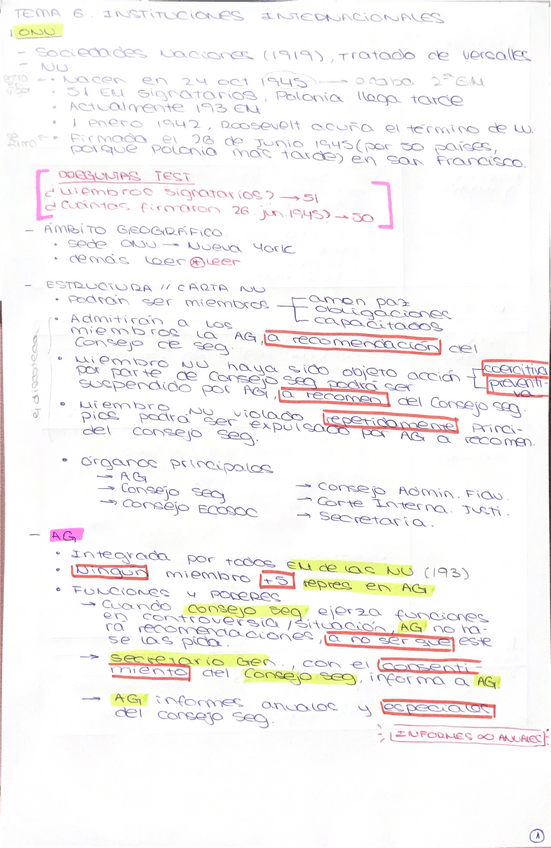 TEMA 6. INSTITUCIONES INTERNACIONALES
1. ONU
- Sociedades Naciones (1919), Tratado de Versalles
- NU
· Nacen en 24 oct 1945 → acaba 2ª GM
· 51 EM signatarios, Polonia llega tarde
· Actualmente 193 EM
· 1 enero 1942, Roosevelt acuña el término de
· Firmada el 26 de junio 1945 (por 50 países,
porque Polonia más tarde) en San Francisco.
PREGUNTAS TEST
¿Miembros signatarios? → 51
¿Cuántos firmaron 26 jun. 1945? → 50
- ÁMBITO GEOGRÁFICO
· sede ONU → Nueva York
· demás leer * leer
- ESTRUCTURA // CARTA NU
· Podrán ser miembros
amen paz
obligaciones
capacitados
· Admitirán a los
miembros la AG, a recomendación del
Consejo de Seg.
· Miembro NU haya sido objeto acción
coercitiva
preventiva
por parte de Consejo Seg podrá ser
suspendido por AG, a recomen. del Consejo Seg.
· Miembro NU violado repetidamente princi-
pios podrá ser expulsado por AG a recomen.
del consejo seg.
· órganos principales
→ AG
→ Consejo Seg
→ Consejo ECOSOC
→ Consejo Admin. Fidu.
→ Corte Interna. Justi.
→ Secretaria.
- AG
· Integrada por todos EM de las NU (193)
· Ningún miembro +5 repres en AG
· Funciones y poderes
→ Cuando consejo seg ejerza funciones
en controversia/situación, AG no ha-
rá recomendaciones, a no ser que este
se las pida.
→ Secretario Gen., con el consenti-
miento del Consejo Seg, informa a AG
→ AG informes anuales y especiales
del consejo seg.
INFORMES ∞ ANUALES
1